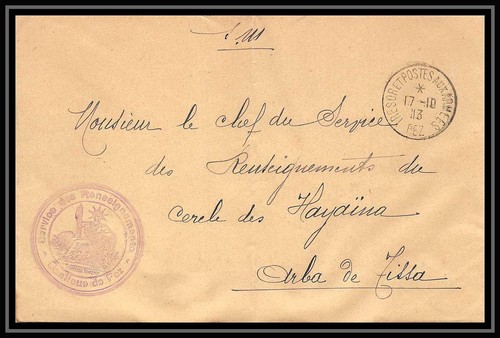 S.M
TRESOR ET POSTES AUX ARMEES
*
17-10
13
FEZ
Monsieur le chef du Service
des Renseignements du
Cercle des Hayaïna
Arba de Tissa
Service des Renseignements
de Fez